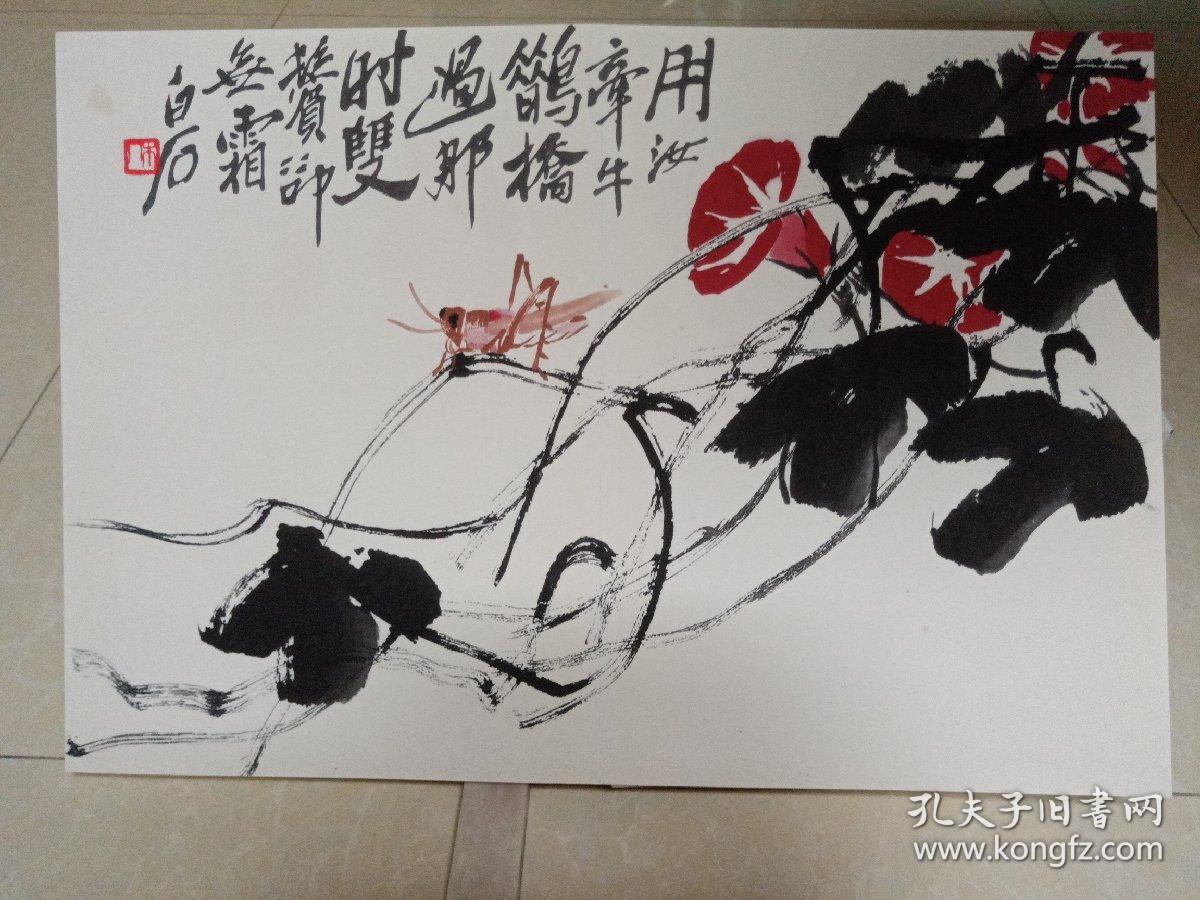 用汝
牽牛
鵲橋
過那
时雙
鬢卻
無霜
白石
孔夫子旧書网
www.kongfz.com